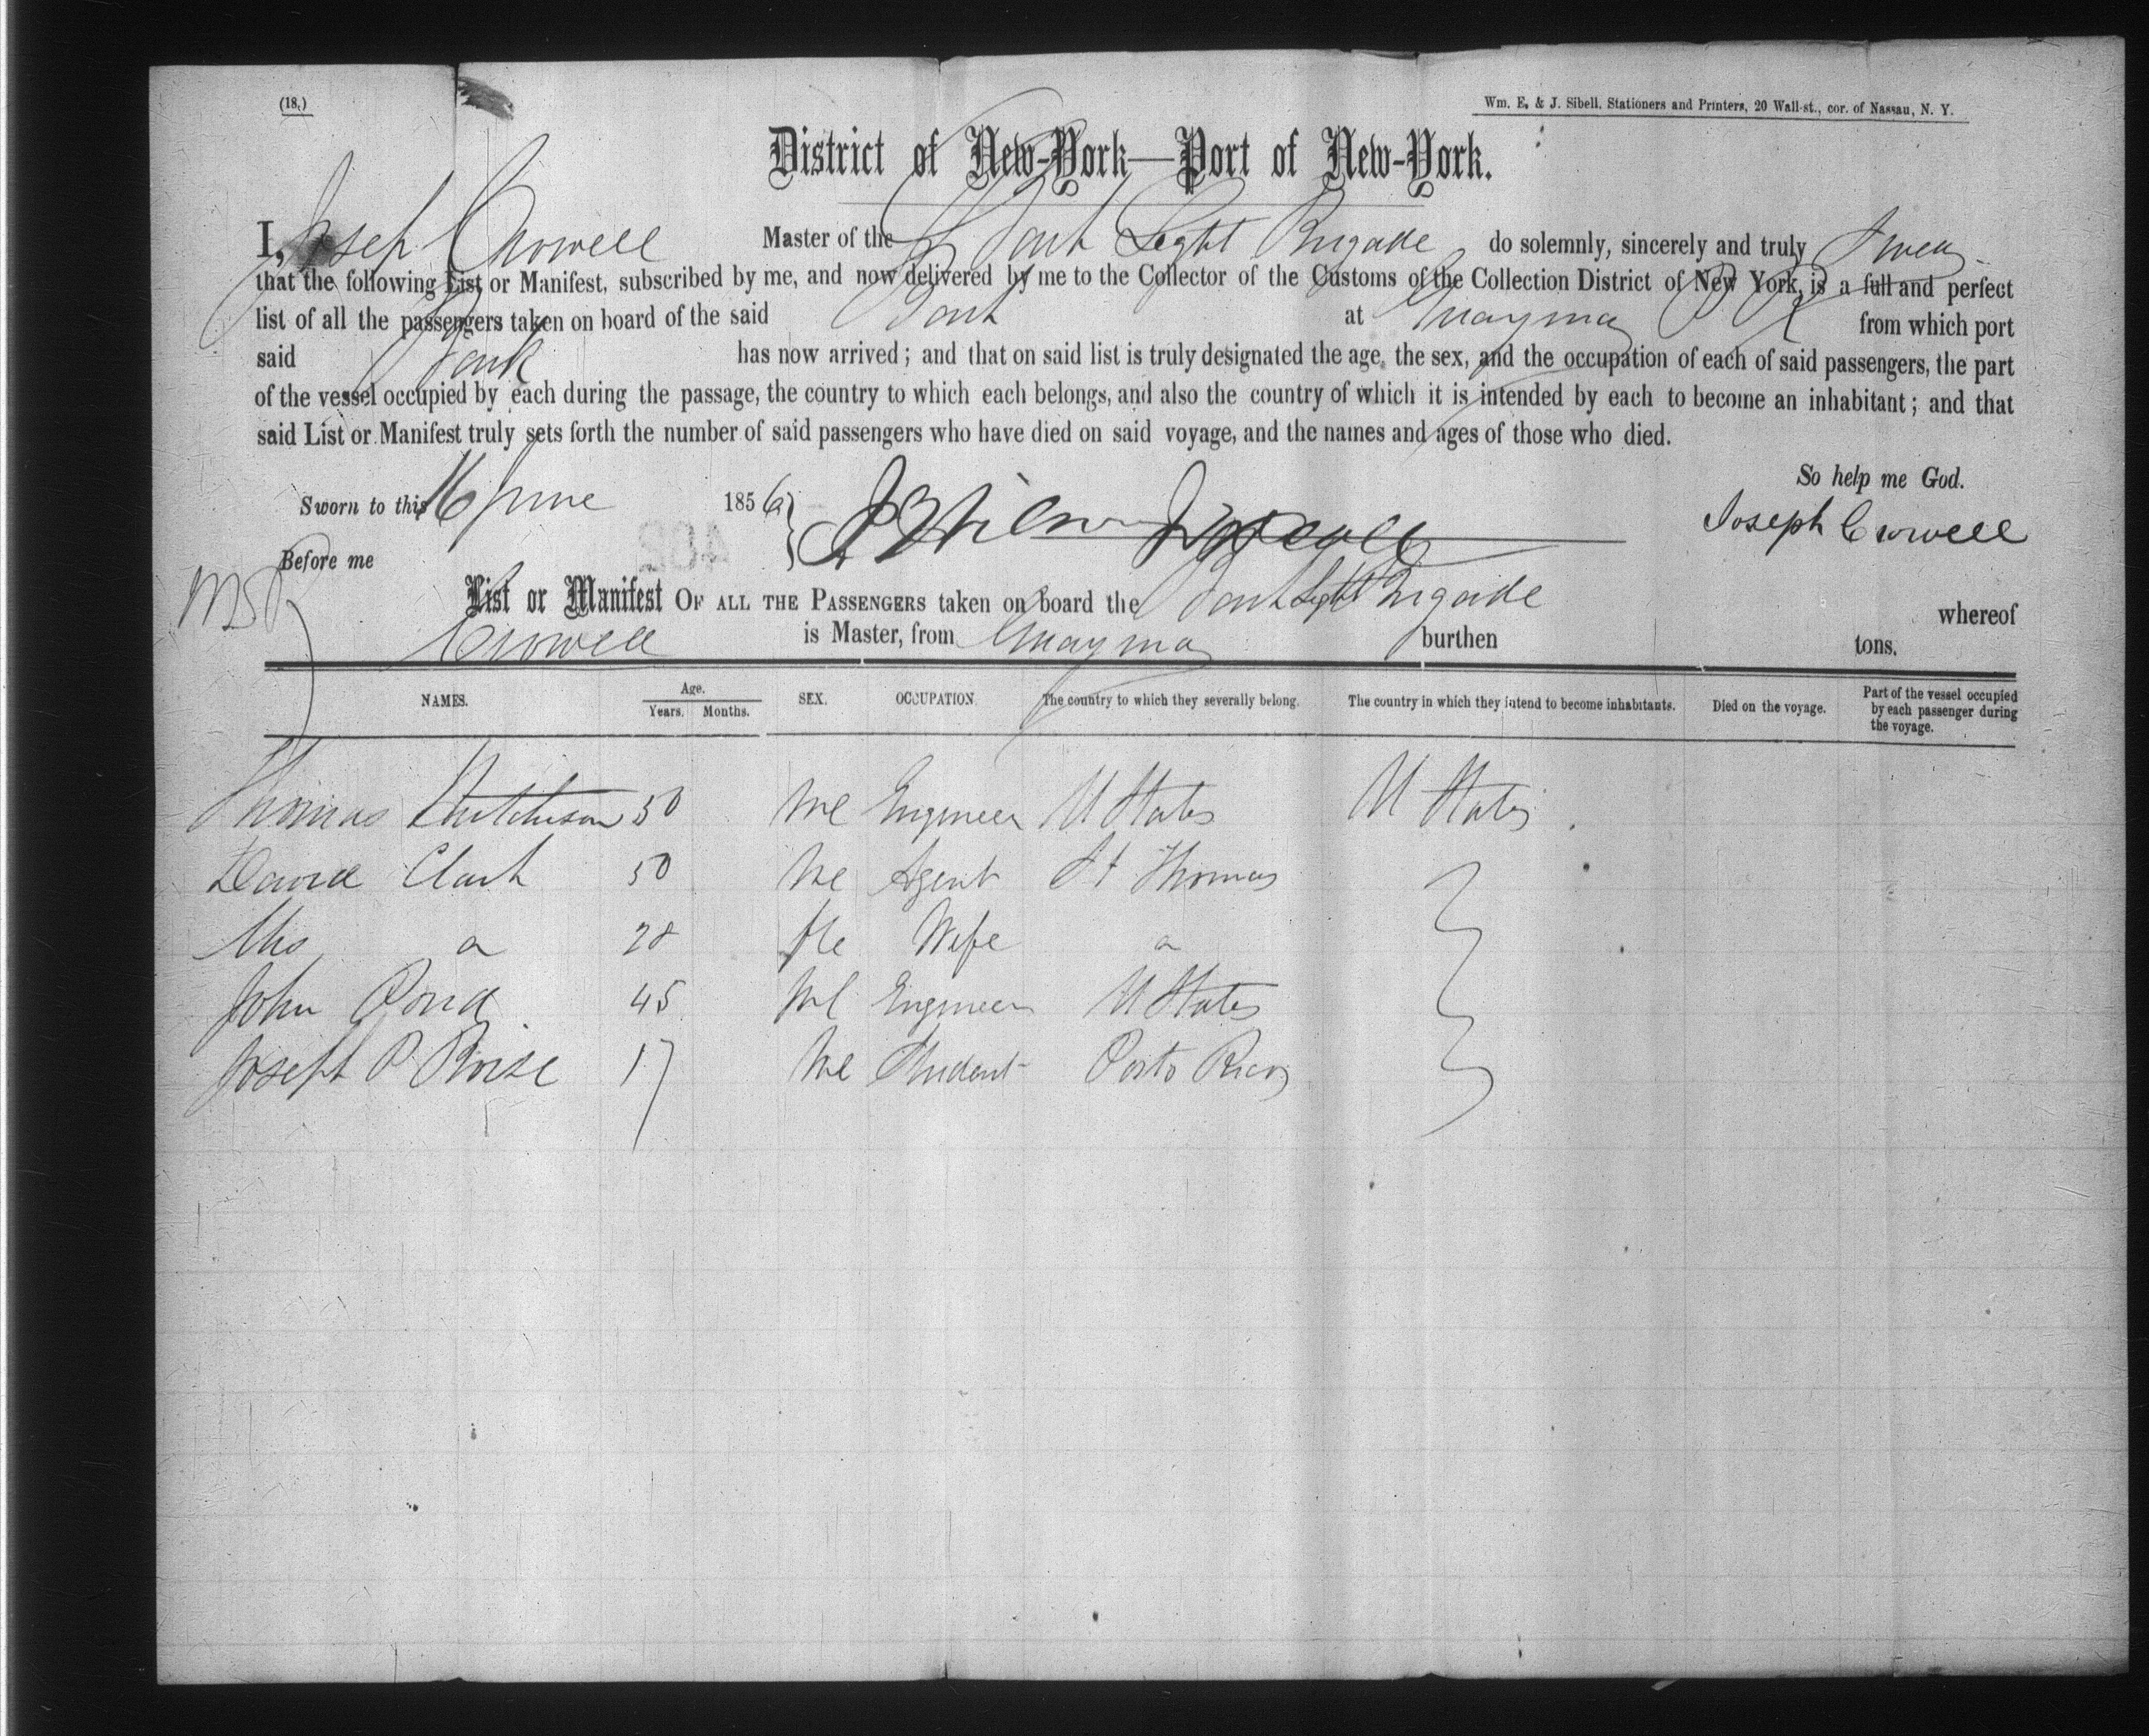 (18.)
Wm. E. & J. Sibell, Stationers and Printers, 20 Wall-st., cor. of Nassau, N. Y.
District of New-York—Port of New-York.
I, Joseph Crowell Master of the Bark Light Brigade do solemnly, sincerely and truly Swear
that the following List or Manifest, subscribed by me, and now delivered by me to the Collector of the Customs of the Collection District of New York, is a full and perfect
list of all the passengers taken on board of the said Bark at Guayma P R from which port
said Bark has now arrived; and that on said list is truly designated the age, the sex, and the occupation of each of said passengers, the part
of the vessel occupied by each during the passage, the country to which each belongs, and also the country of which it is intended by each to become an inhabitant; and that
said List or Manifest truly sets forth the number of said passengers who have died on said voyage, and the names and ages of those who died.
So help me God.
Sworn to this 16 June 1856
Joseph Crowell
Before me
List or Manifest OF ALL THE PASSENGERS taken on board the Bark Light Brigade whereof
Crowell is Master, from Guayma burthen tons.
NAMES. Age. Years. Months. SEX. OCCUPATION. The country to which they severally belong. The country in which they intend to become inhabitants. Died on the voyage. Part of the vessel occupied by each passenger during the voyage.
Thomas Hutchison 50 Ml Engineer U States U States
David Clark 50 Ml Agent St Thomas
Mrs 28 Fle Wife
John Pond 45 Ml Engineer U States
Joseph P 17 Ml Student Porto Rico